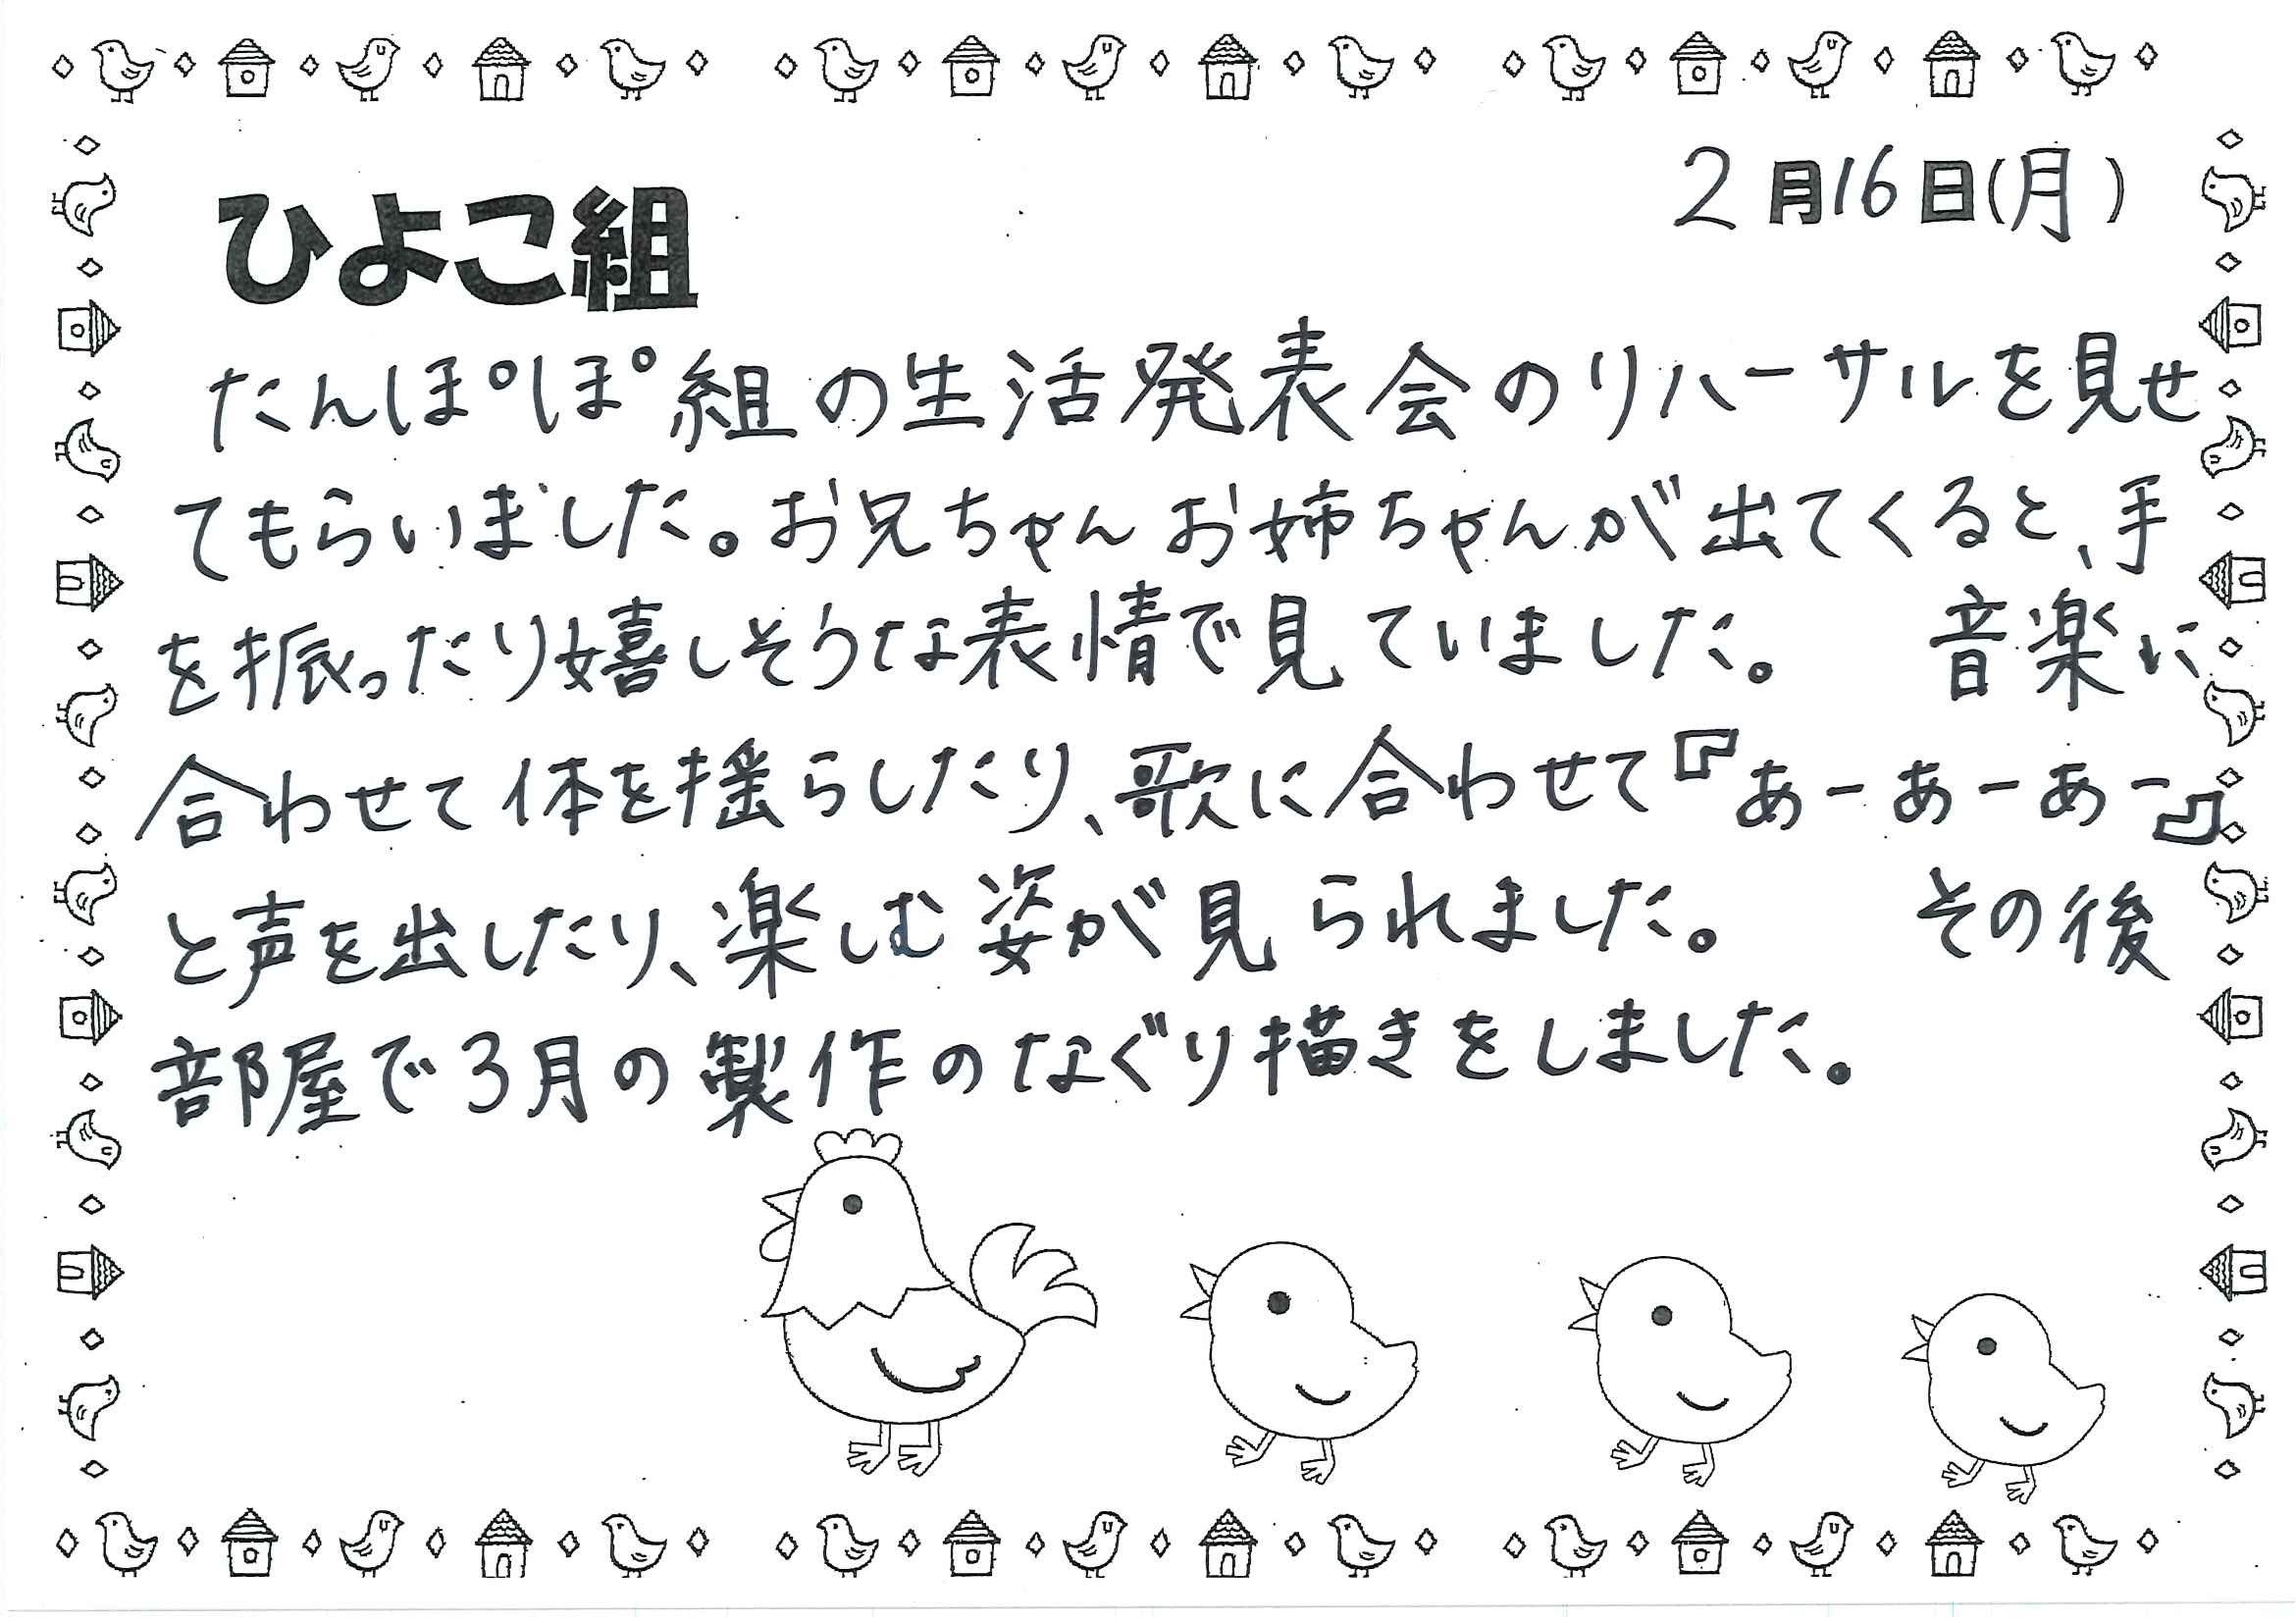 2月16日(月)
ひよこ組
たんぽぽ組の生活発表会のリハーサルを見せ
てもらいました。お兄ちゃんお姉ちゃんが出てくると、手
を振ったり嬉しそうな表情で見ていました。 音楽に
合わせて体を揺らしたり、歌に合わせて『あーあーあー』
と声を出したり、楽しむ姿が見られました。 その後
部屋で3月の製作のなぐり描きをしました。